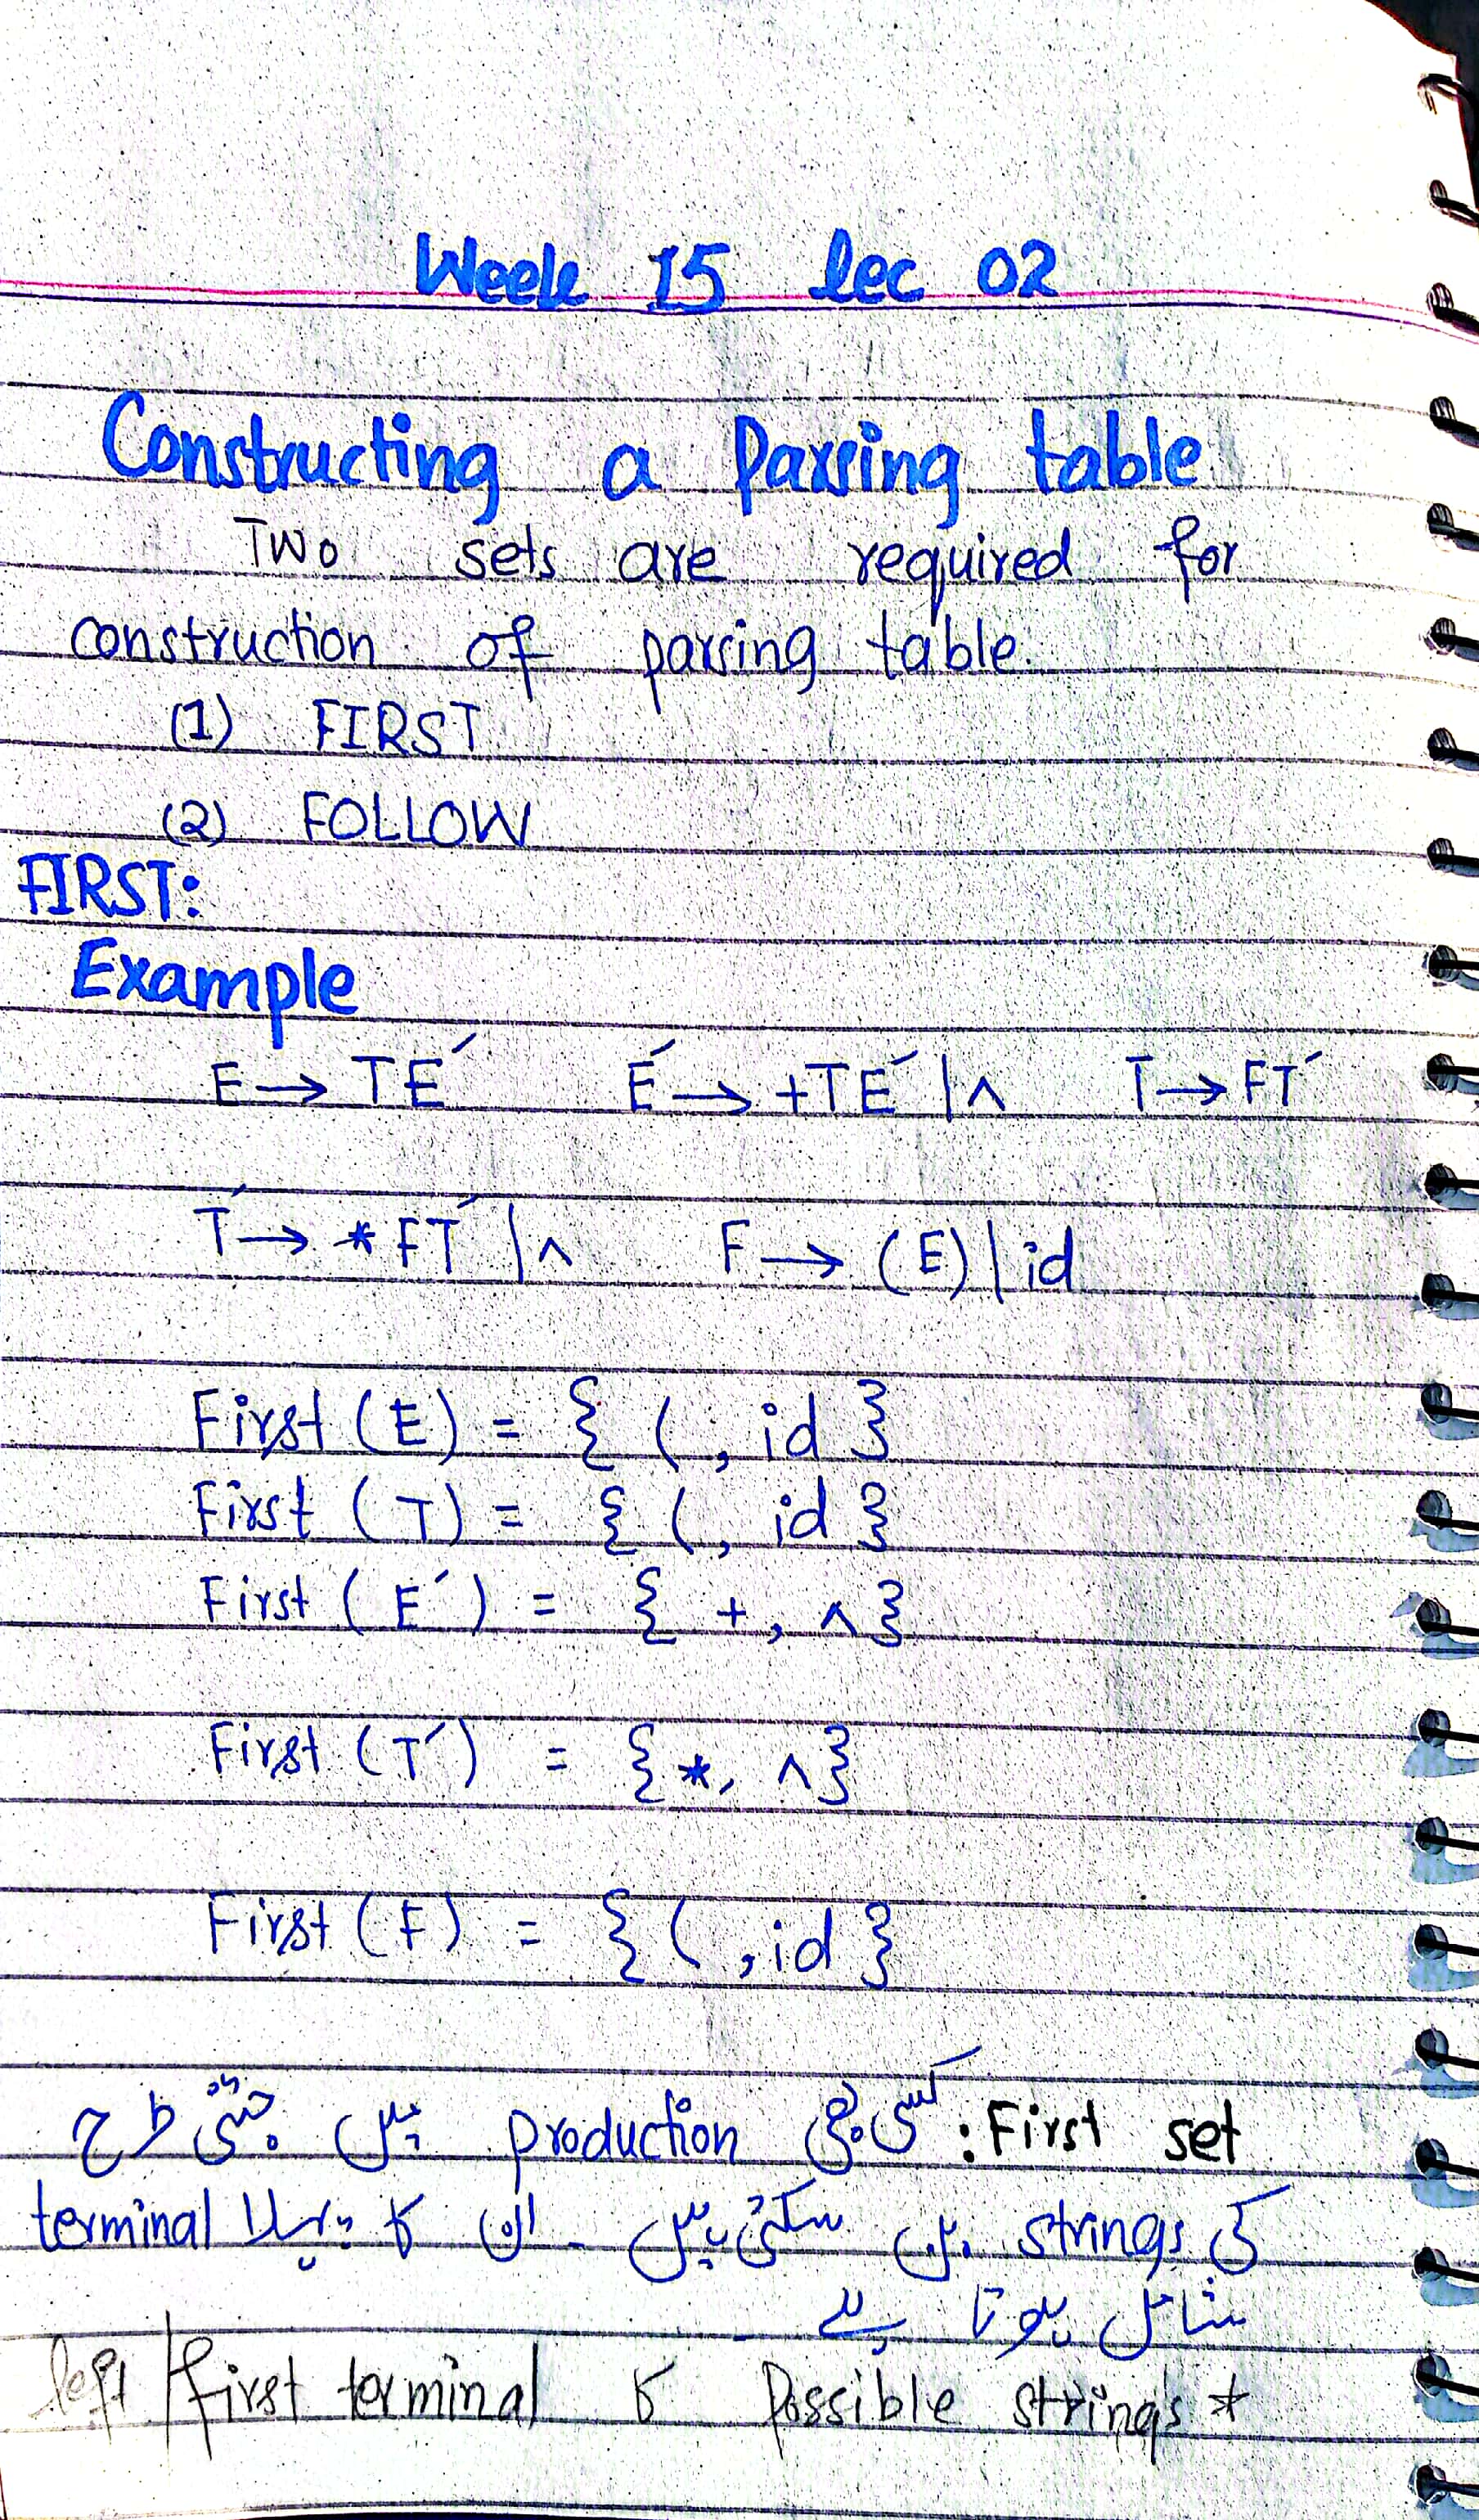 Week 15 lec 02
Constructing a Parsing table
Two sets are required for
construction of parsing table.
(1) FIRST
(2) FOLLOW
FIRST:
Example
E → TE´ E´ → +TE´ | ^ T → FT´
T´ → *FT´ | ^ F → (E) | id
First (E) = { ( , id }
First (T) = { ( , id }
First (E´) = { + , ^ }
First (T´) = { * , ^ }
First (F) = { ( , id }
First set : کسی بھی production میں جتنی طرح
کی strings بن سکتی ہیں ۔ ان کا پہلا terminal
شامل ہوتا ہے ۔
* Possible strings کا left / first terminal